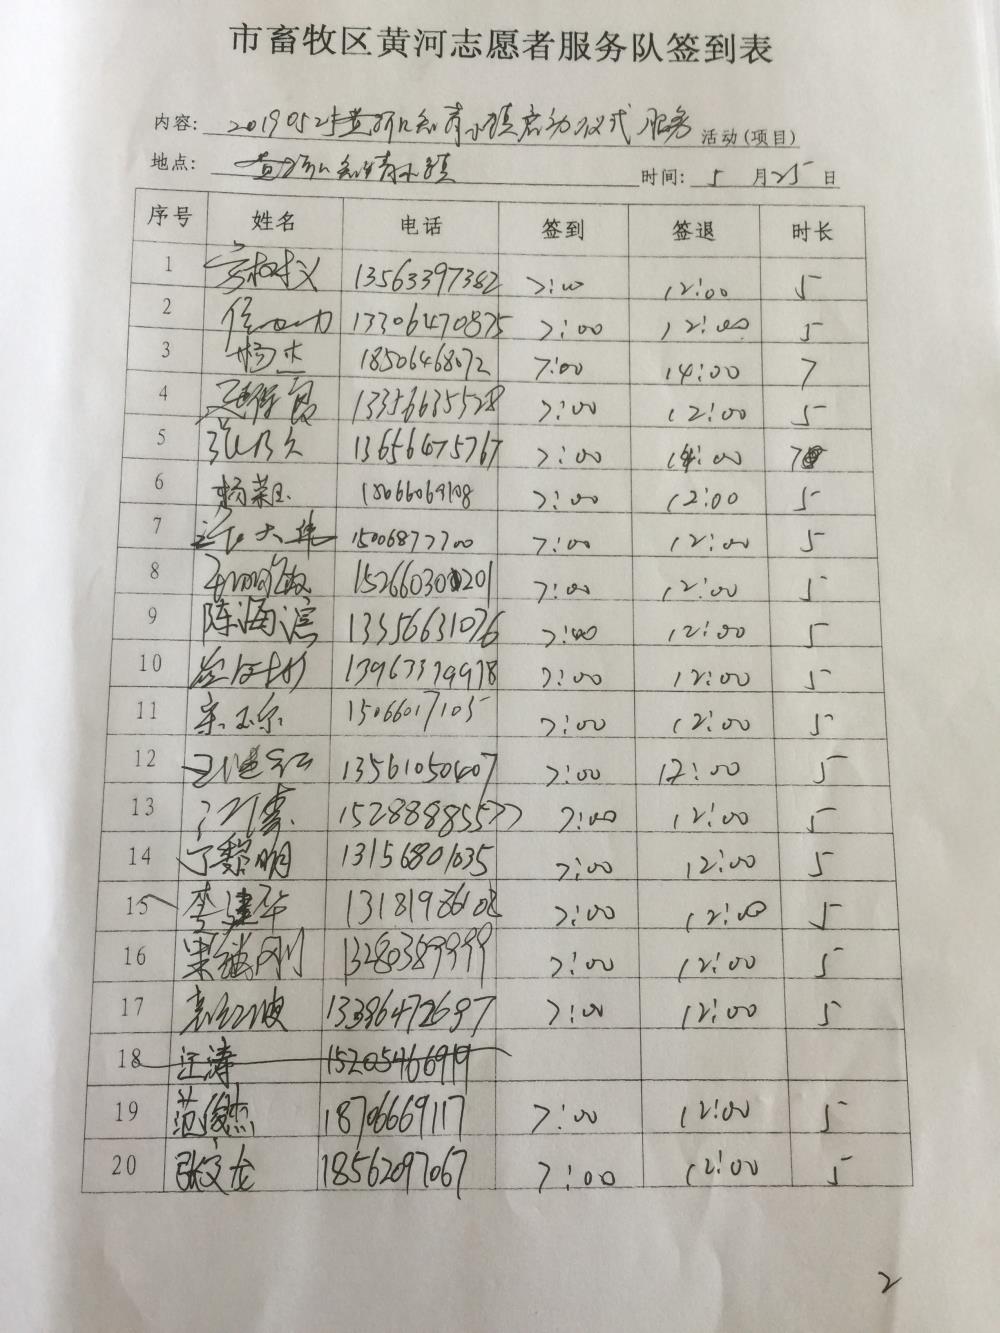 市畜牧区黄河志愿者服务队签到表
内容: 20190525黄河口知青小镇启动仪式 服务 活动(项目)
地点: 黄河口知青小镇 时间: 5 月 25 日
序号 姓名 电话 签到 签退 时长
1 13563397382 7:00 12:00 5
2 13306470875 7:00 12:00 5
3 杨杰 18506468072 7:00 14:00 7
4 13356635528 7:00 12:00 5
5 13656475767 7:00 14:00 7
6 杨荣玉 18066069108 7:00 12:00 5
7 15006877700 7:00 12:00 5
8 15266030201 7:00 12:00 5
9 陈海滨 13356631076 7:00 12:00 5
10 7:00 12:00 5
11 宋玉乐 15066017105 7:00 12:00 5
12 13561050407 7:00 12:00 5
13 15288885577 7:00 12:00 5
14 丁黎明 13156801035 7:00 12:00 5
15 李建华 13181986108 7:00 12:00 5
16 13280389999 7:00 12:00 5
17 袁红波 7:00 12:00 5
18 汪涛 15205466919
19 范俊杰 18706669117 7:00 12:00 5
20 张文龙 18562097067 7:00 12:00 5
2